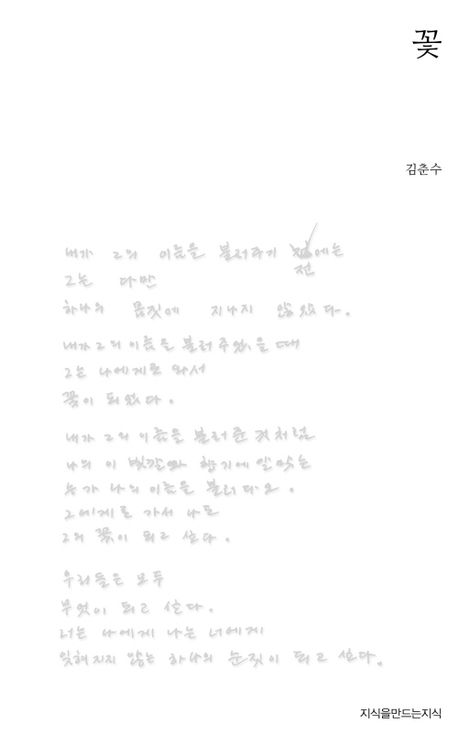 꽃
김춘수
내가 그의 이름을 불러주기 전에는
그는 다만
하나의 몸짓에 지나지 않았다.
내가 그의 이름을 불러 주었을 때
그는 나에게로 와서
꽃이 되었다.
내가 그의 이름을 불러준 것처럼
나의 이 빛깔과 향기에 알맞는
누가 나의 이름을 불러다오.
그에게로 가서 나도
그의 꽃이 되고 싶다.
우리들은 모두
무엇이 되고 싶다.
너는 나에게 나는 너에게
잊혀지지 않는 하나의 눈짓이 되고 싶다.
지식을만드는지식